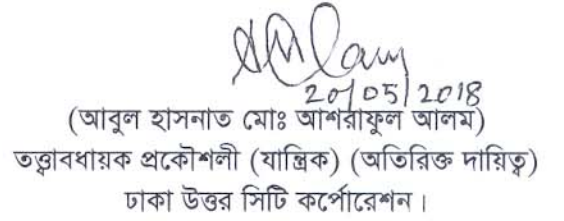 20/05/2018
(আবুল হাসনাত মোঃ আশরাফুল আলম)
তত্ত্বাবধায়ক প্রকৌশলী (যান্ত্রিক) (অতিরিক্ত দায়িত্ব)
ঢাকা উত্তর সিটি কর্পোরেশন।